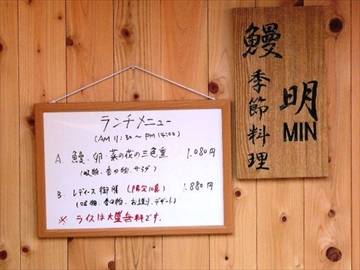 ランチメニュー
(AM 11:30 ~ PM 14:00)
A. 鰻・卵・菜の花の三色重 1.080円
(吸物、香の物、サラダ)
B. レディース御膳 (限定10食) 1.880円
(吸物、香の物、お造り、デザート)
※ ライスは大盛無料です。
鰻季節料理
明
MIN